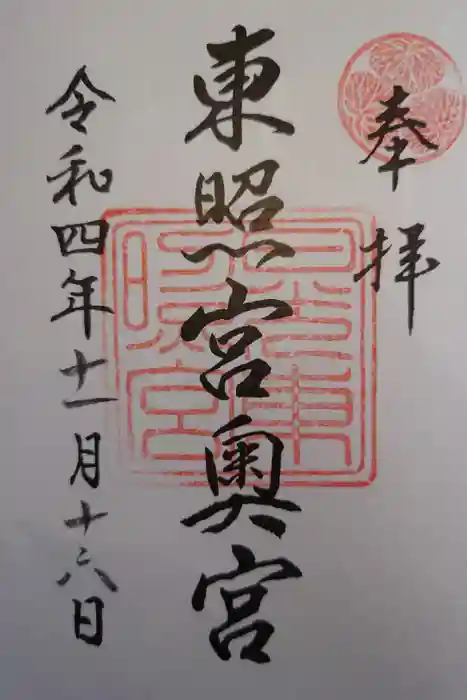 奉拝
東照宮奥宮
令和四年十一月十六日